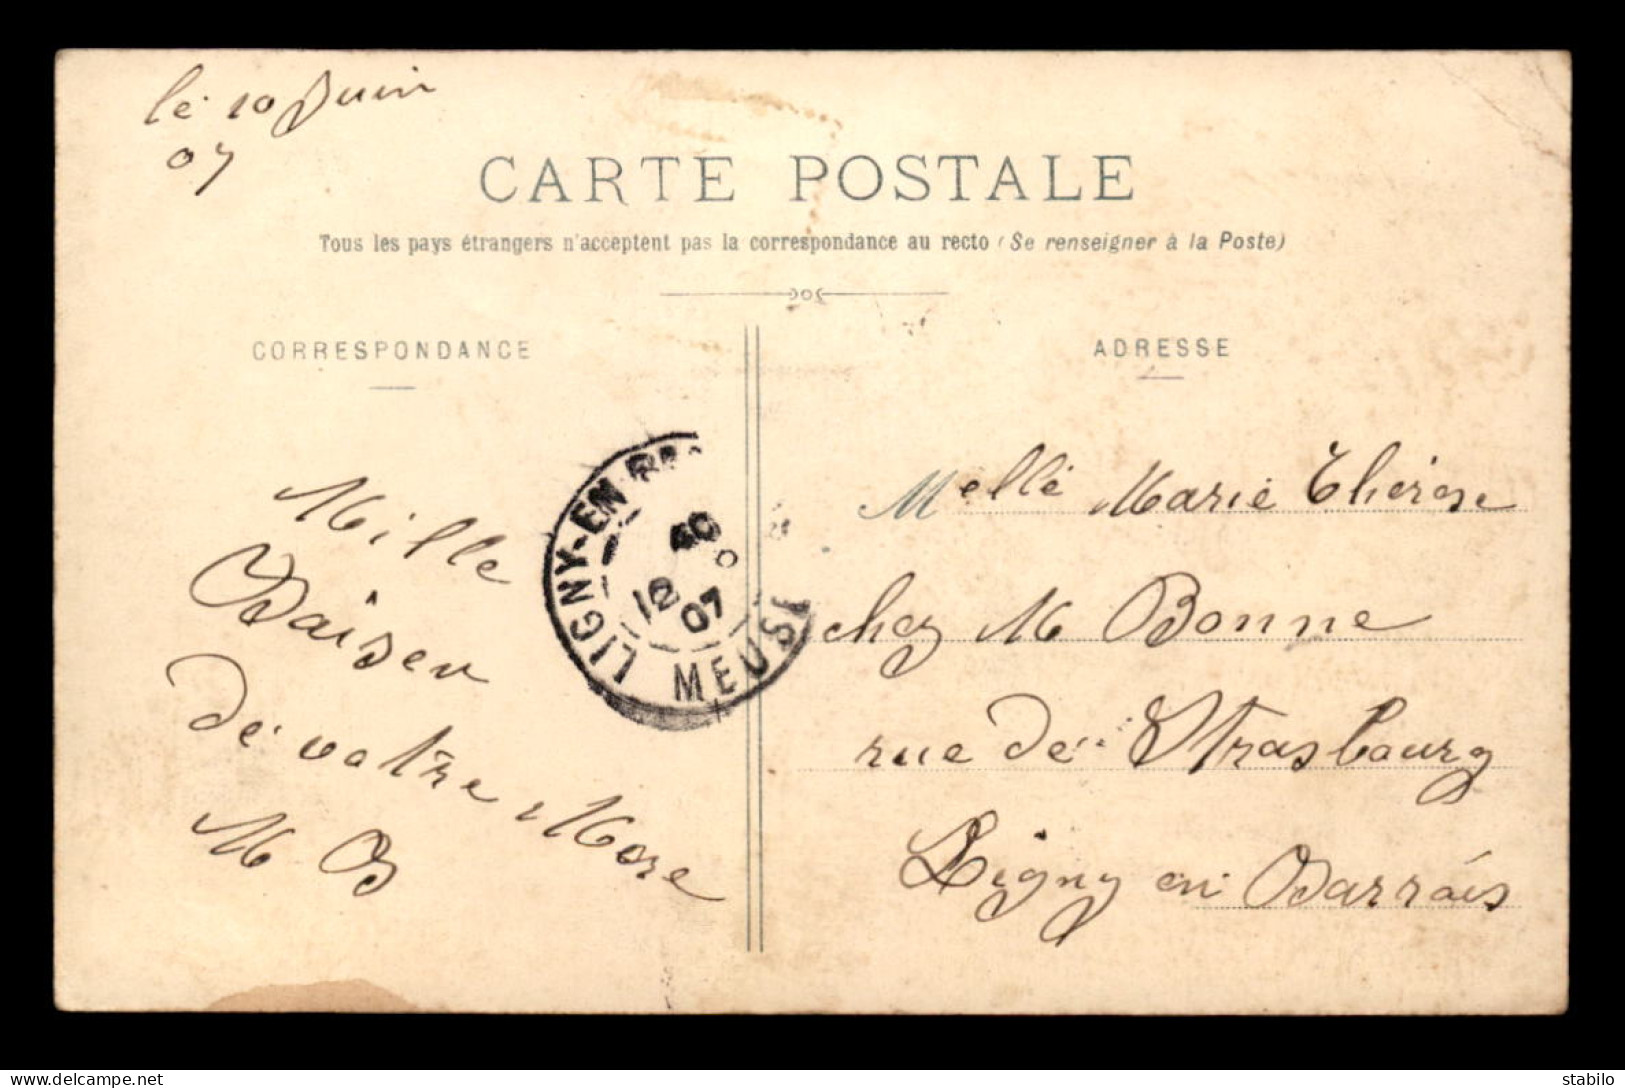 le 10 Juin
07
CARTE POSTALE
Tous les pays étrangers n'acceptent pas la correspondance au recto (Se renseigner à la Poste)
CORRESPONDANCE
ADRESSE
Mille
Baiser
de votre Mere
M B
LIGNY-EN-B
40
12
07
MEUSE
Melle Marie Thérese
chez M Bonne
rue de Strasbourg
Ligny en Barrois
delcampe.net
stabilo